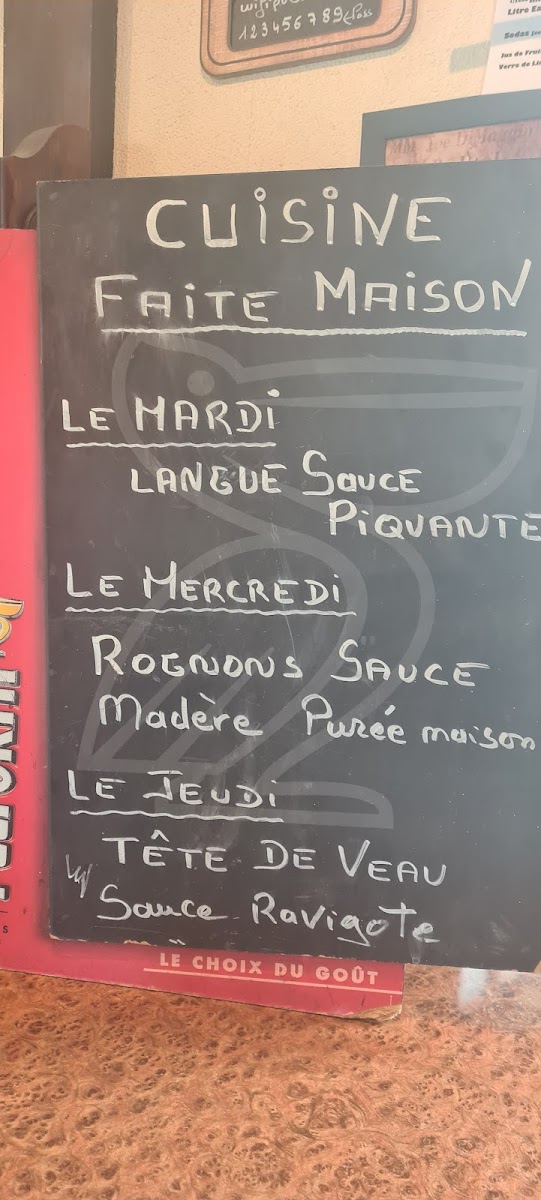 123456789
Pass
Litre
Sodas
Jus de
Verre de
CUISINE
FAITE MAISON
LE MARDI
LANGUE SAUCE
PIQUANTE
LE MERCREDI
ROGNONS SAUCE
Madère Purée maison
LE JEUDI
TÊTE DE VEAU
Sauce Ravigote
LE CHOIX DU GOÛT